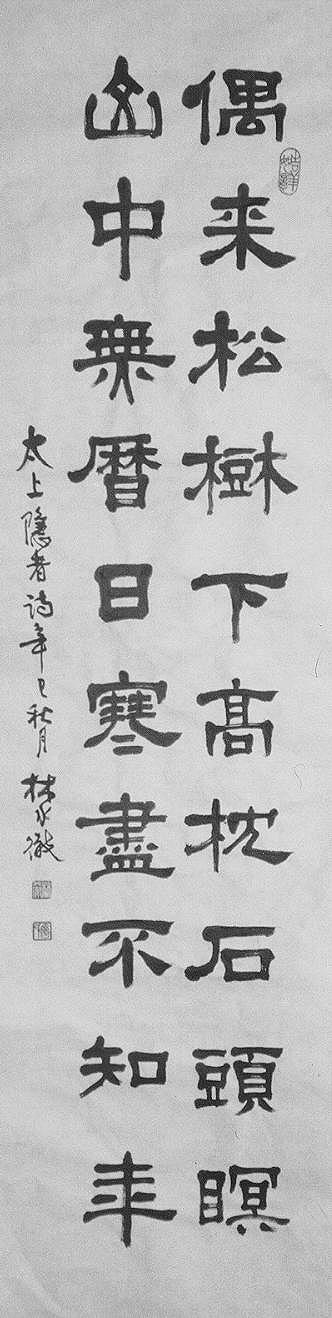 偶来松樹下高枕石頭瞑
山中無曆日寒盡不知年
太上隱者詩辛巳秋月林